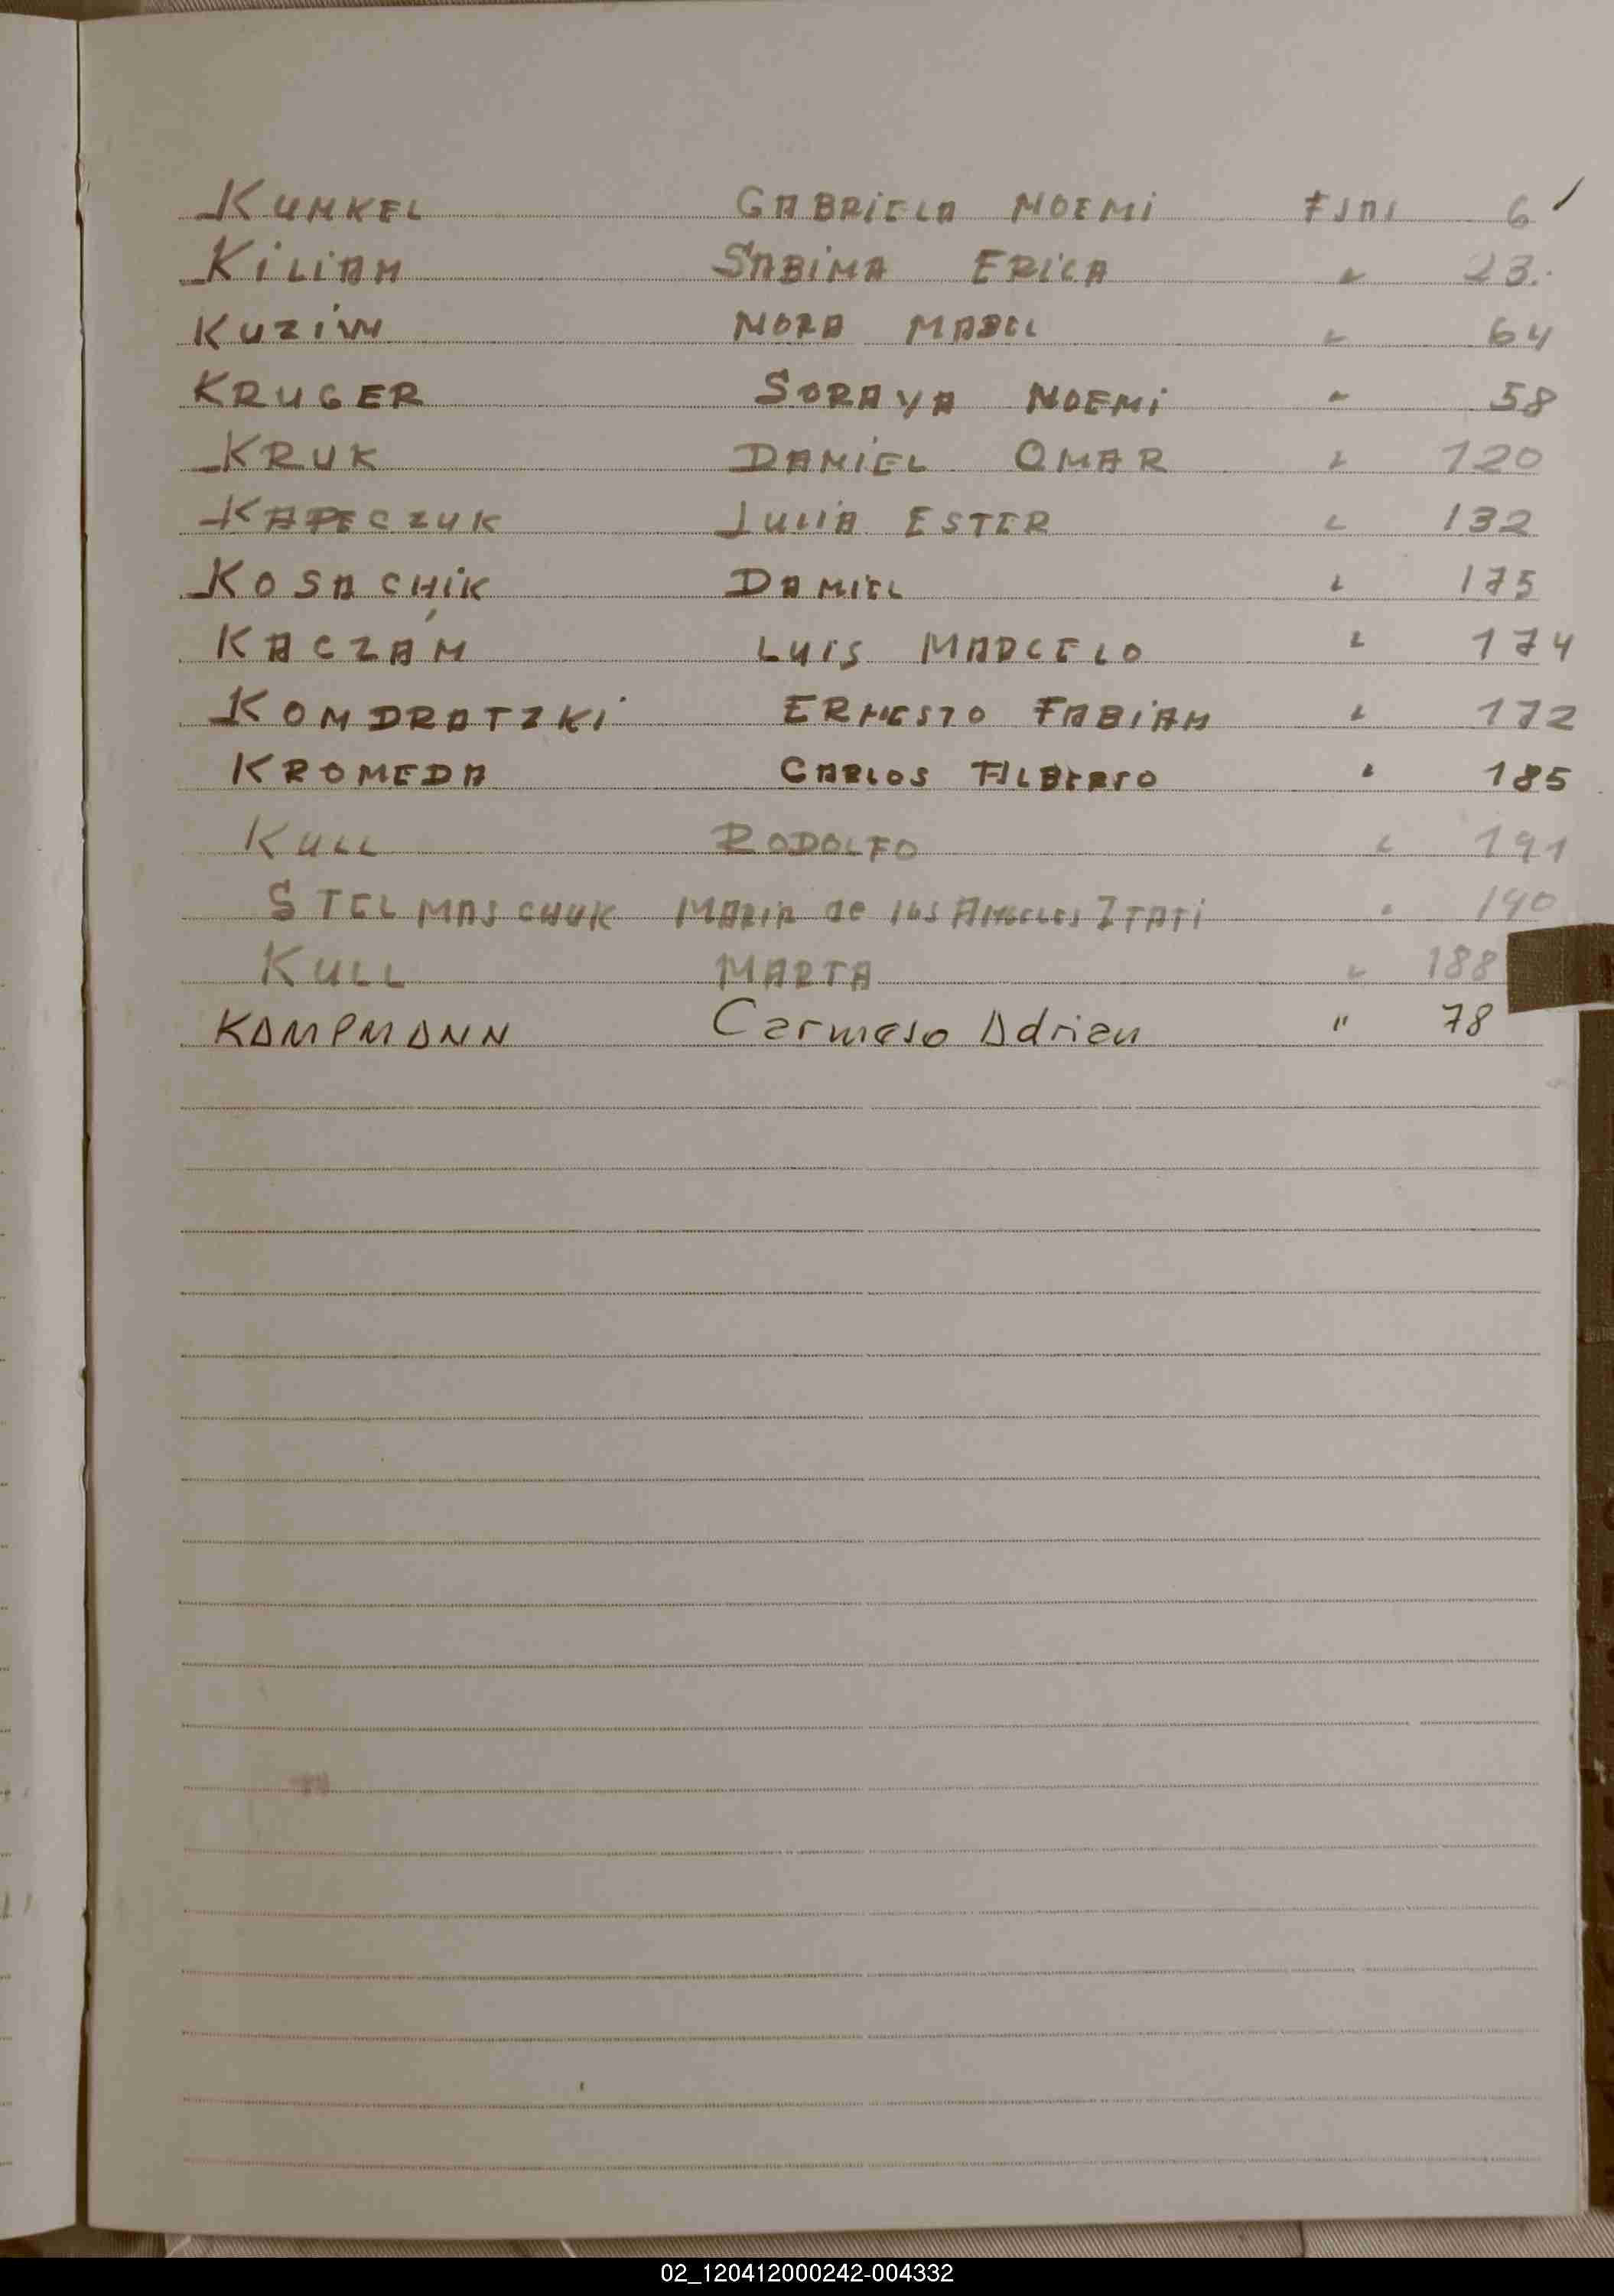 KUNKEL GABRIELA NOEMI 6
KiLiAN SABiNA ERiCA " 23.
KUZiW NORA MABEL " 64
KRUGER SORAYA NOEMi " 58
KRUK DANiEL OMAR " 120
JULIA ESTER " 132
KOSACHiK DANIEL " 175
KACZAN LUIS MARCELO " 174
KONDRATZKi ERNESTO FABiAN " 172
KROMEDA CARLOS ALBERTO " 185
KULL RODOLFO " 191
STELMASCHUK MARIA de los ANGELES ITATi " 190
KULL MARTA " 188
KAMPMANN Carmelo Adrian " 78
02_120412000242-004332